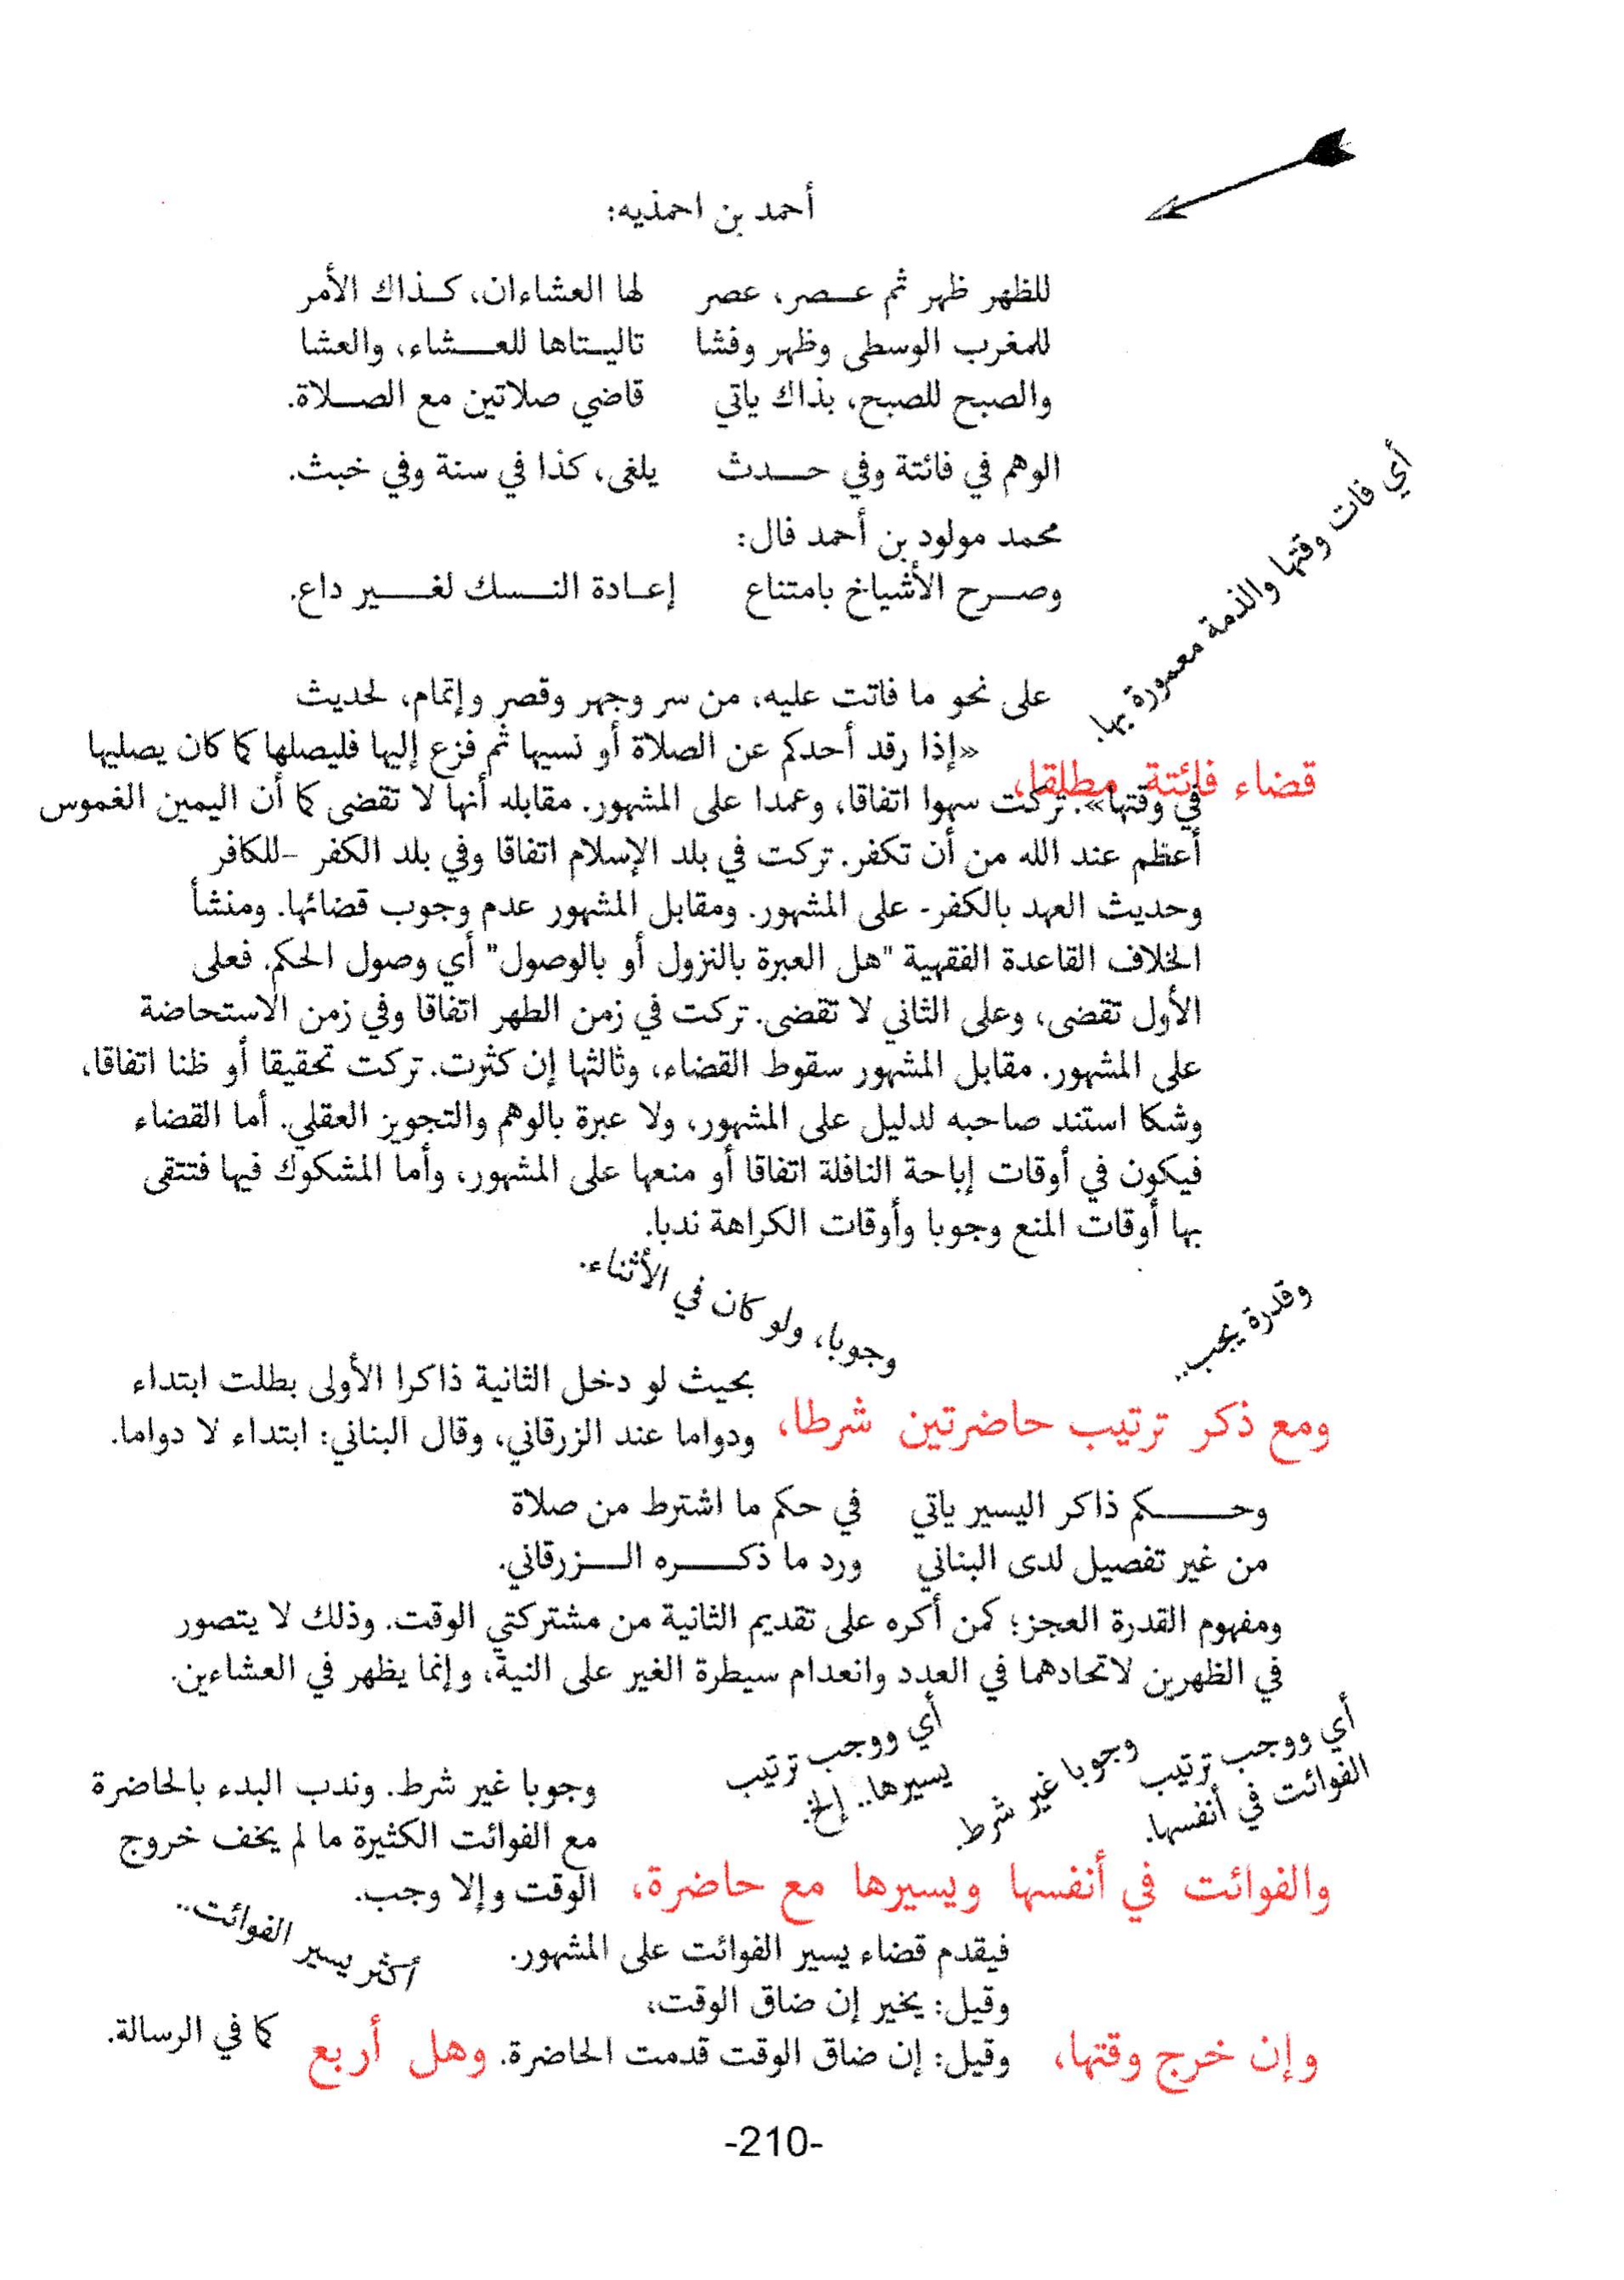 أحمد بن احمذيه:
للظهر ظهر ثم عصر، عصر لها العشاءان، كذاك الأمر
للمغرب الوسطى وظهر وفشا تاليتاها للعشاء، والعشا
والصبح للصبح، بذاك ياتي قاضي صلاتين مع الصلاة.
الوهم في فائتة وفي حدث يلغى، كذا في سنة وفي خبث.
محمد مولود بن أحمد فال:
وصرح الأشياخ بامتناع إعادة النسك لغير داع.
أي فات وقتها والذمة معمورة بها.
قضاء فائتة مطلقا،
على نحو ما فاتت عليه، من سر وجهر وقصر وإتمام، لحديث
«إذا رقد أحدكم عن الصلاة أو نسيها ثم فزع إليها فليصلها كما كان يصليها
في وقتها». تركت سهوا اتفاقا، وعمدا على المشهور. مقابله أنها لا تقضى كما أن اليمين الغموس
أعظم عند الله من أن تكفر. تركت في بلد الإسلام اتفاقا وفي بلد الكفر -للكافر
وحديث العهد بالكفر- على المشهور. ومقابل المشهور عدم وجوب قضائها. ومنشأ
الخلاف القاعدة الفقهية "هل العبرة بالنزول أو بالوصول" أي وصول الحكم. فعلى
الأول تقضى، وعلى الثاني لا تقضى. تركت في زمن الطهر اتفاقا وفي زمن الاستحاضة
على المشهور. مقابل المشهور سقوط القضاء، وثالثها إن كثرت. تركت تحقيقا أو ظنا اتفاقا،
وشكا استند صاحبه لدليل على المشهور، ولا عبرة بالوهم والتجويز العقلي. أما القضاء
فيكون في أوقات إباحة النافلة اتفاقا أو منعها على المشهور، وأما المشكوك فيها فتتقى
بها أوقات المنع وجوبا وأوقات الكراهة ندبا.
وقدرة يجب..
وجوبا، ولو كان في الأثناء.
ومع ذكر ترتيب حاضرتين شرطا،
بحيث لو دخل الثانية ذاكرا الأولى بطلت ابتداء
ودواما عند الزرقاني، وقال البناني: ابتداء لا دواما.
وحكم ذاكر اليسير ياتي في حكم ما اشترط من صلاة
من غير تفصيل لدى البناني ورد ما ذكره الزرقاني.
ومفهوم القدرة العجز؛ كمن أكره على تقديم الثانية من مشتركتي الوقت. وذلك لا يتصور
في الظهرين لاتحادهما في العدد وانعدام سيطرة الغير على النية، وإنما يظهر في العشاءين.
أي ووجب ترتيب
الفوائت في أنفسها.
وجوبا غير شرط.
أي ووجب ترتيب
يسيرها.. إلخ.
والفوائت في أنفسها ويسيرها مع حاضرة،
وجوبا غير شرط. وندب البدء بالحاضرة
مع الفوائت الكثيرة ما لم يخف خروج
الوقت وإلا وجب.
وإن خرج وقتها،
فيقدم قضاء يسير الفوائت على المشهور.
وقيل: يخير إن ضاق الوقت،
وقيل: إن ضاق الوقت قدمت الحاضرة.
أكثر يسير الفوائت..
وهل أربع
كما في الرسالة.
-210-